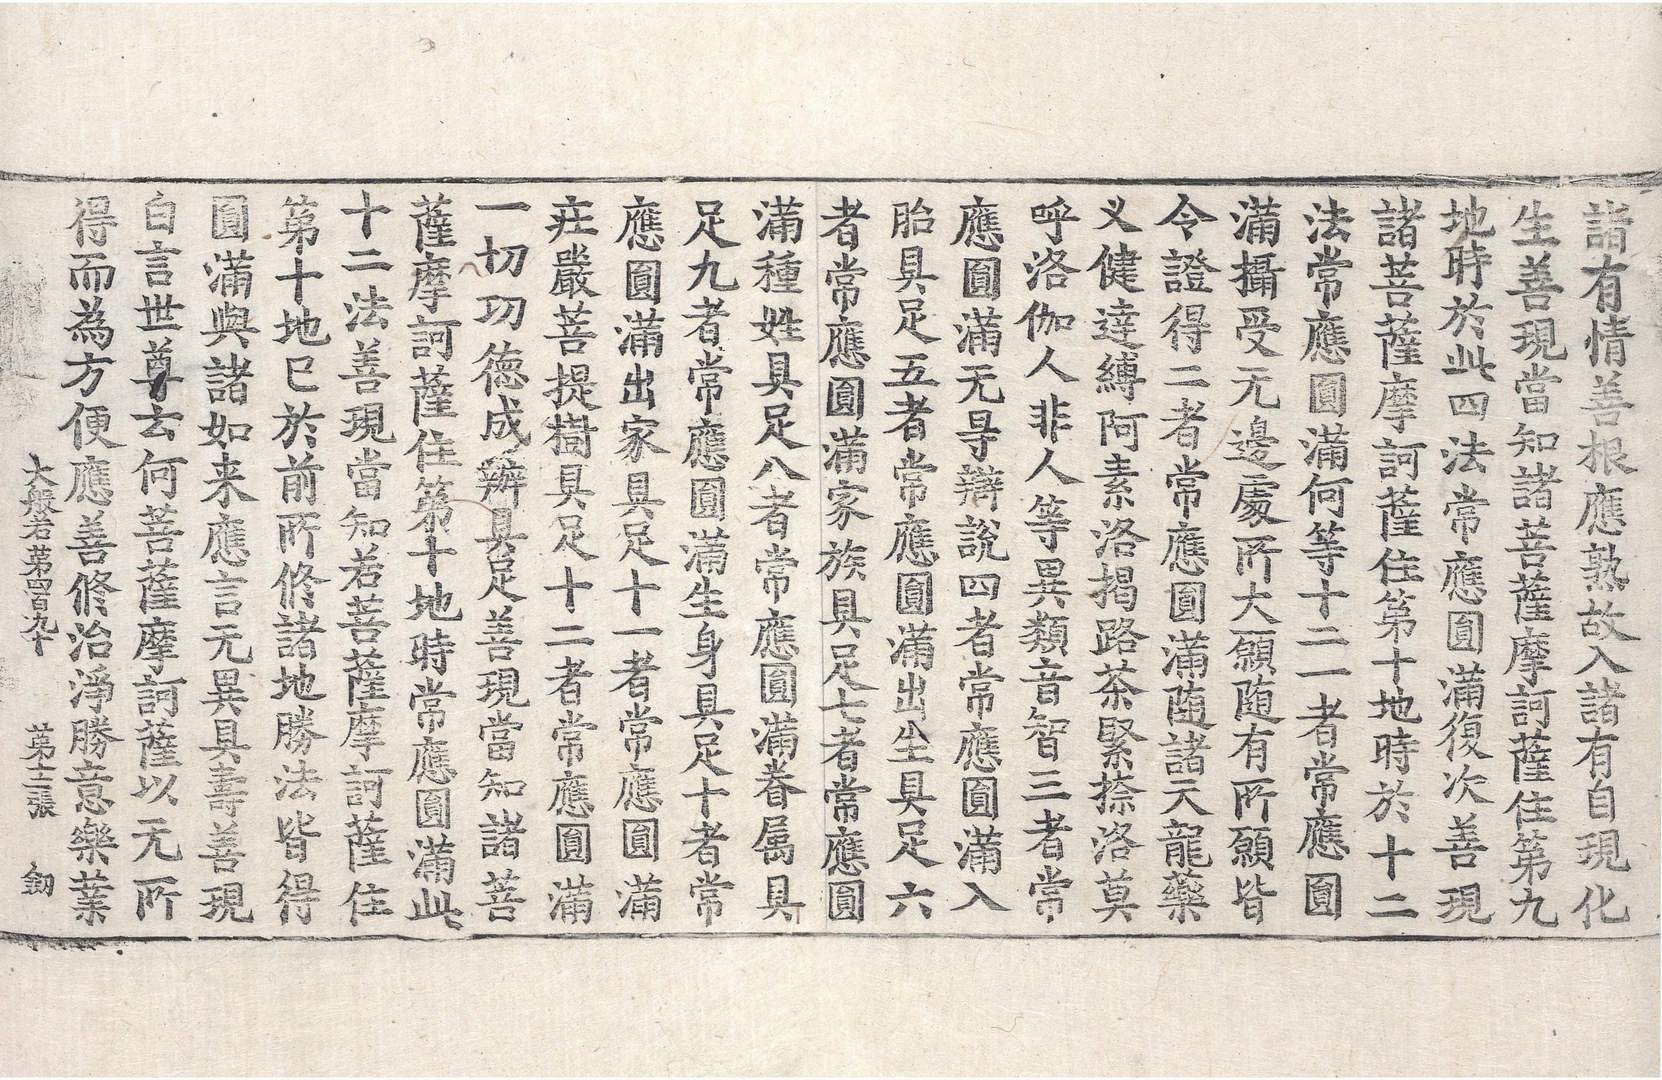 諸有情善根應熟故入諸有自現化
生善現當知諸菩薩摩訶薩住第九
地時於此四法常應圓滿復次善現
諸菩薩摩訶薩住第十地時於十二
法常應圓滿何等十二一者常應圓
滿攝受无邊處所大願隨有所願皆
令證得二者常應圓滿隨諸天龍藥
义健達縛阿素洛揭路茶緊捺洛莫
呼洛伽人非人等異類音智三者常
應圓滿无㝵辯說四者常應圓滿入
胎具足五者常應圓滿出生具足六
者常應圓滿家族具足七者常應圓
滿種姓具足八者常應圓滿眷属具
足九者常應圓滿生身具足十者常
應圓滿出家具足十一者常應圓滿
莊嚴菩提樹具足十二者常應圓滿
一切功德成辦具足善現當知諸菩
薩摩訶薩住第十地時常應圓滿此
十二法善現當知若菩薩摩訶薩住
第十地已於前所修諸地勝法皆得
圓滿與諸如来應言无異具壽善現
白言世尊云何菩薩摩訶薩以无所
得而為方便應善修治淨勝意樂業
大般若第四百九十 第十二張 劒